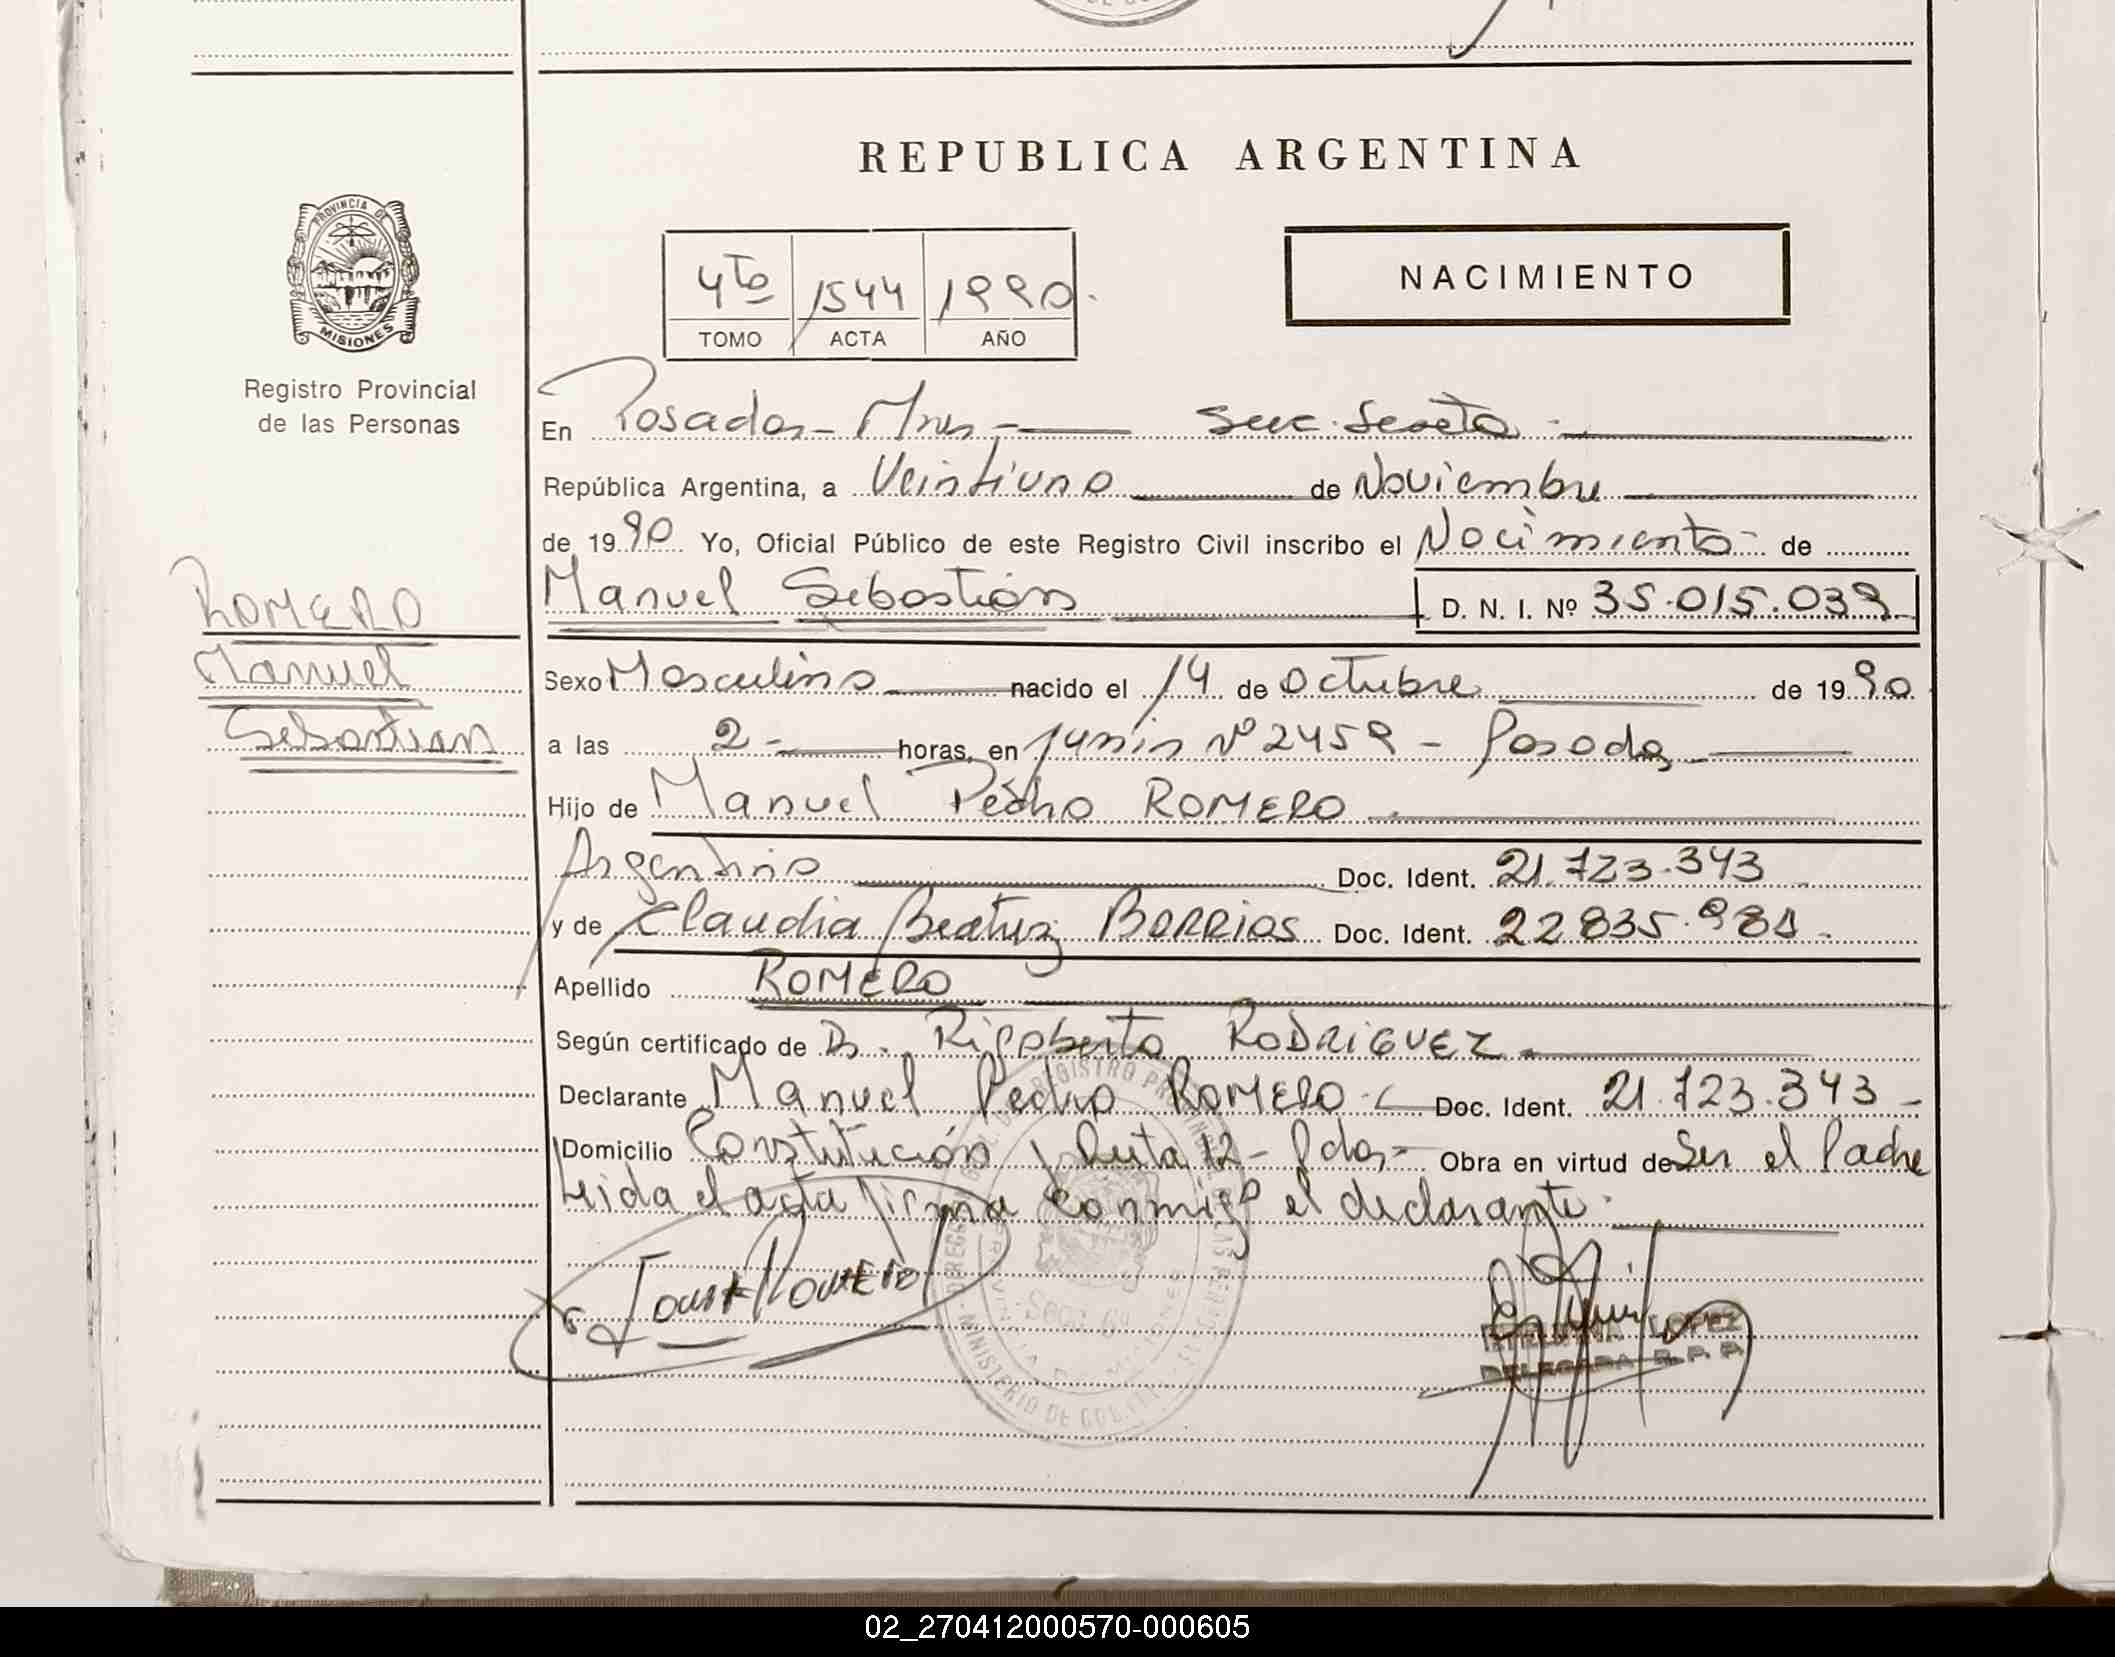 REPUBLICA ARGENTINA
PROVINCIA DE
MISIONES
Registro Provincial
de las Personas
4to 1544 1990.
TOMO ACTA AÑO
NACIMIENTO
En Posadas - Mnes - Secc. Sexta -
República Argentina, a Veintiuno de Noviembre
de 1990 Yo, Oficial Público de este Registro Civil inscribo el Nacimiento - de
Manuel Sebastián D. N. I. Nº 35.015.039
ROMERO
Manuel
Sebastian
Sexo Masculino nacido el 14 de Octubre de 1990.
a las 2 - horas, en Junin Nº 2459 - Posadas
Hijo de Manuel Pedro ROMERO
Argentino Doc. Ident. 21.723.343
y de Claudia Beatriz BARRIOS Doc. Ident. 22.835.981 -
Apellido ROMERO
Según certificado de Dr. Rigoberto RODRIGUEZ
Declarante Manuel Pedro ROMERO - Doc. Ident. 21.723.343 -
Domicilio Constitución y Ruta 12 - Pdas - Obra en virtud de Ser el Padre
Leida el acta firma conmigo el declarante.
Romero
Secc. 6ª
LOPEZ
DELEGADA R. P. P.
02_270412000570-000605